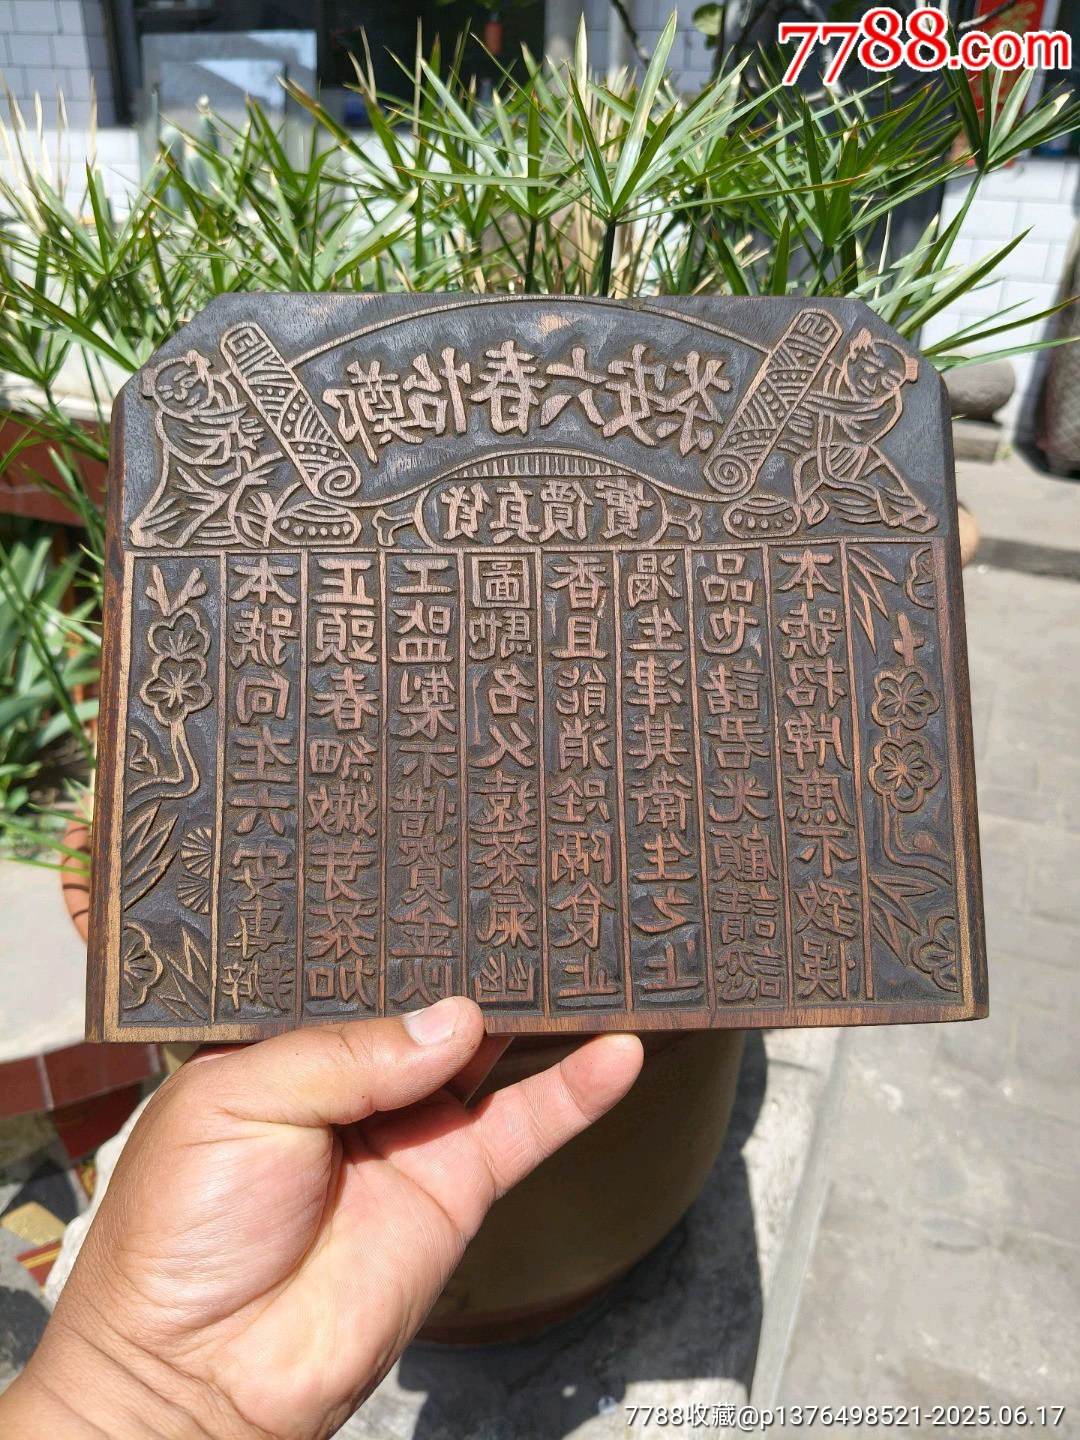 7788.com
鄭怡春六安茶
貨真價實
本號向在六安專辦
正頭春細嫩芽茶加
工監製不惜資金以
圖馳名久遠茶氣幽
香且能消隔食止
渴生津其衛生之上
品也諸君光顧請認
本號招牌庶不致誤
7788收藏@p1376498521-2025.06.17